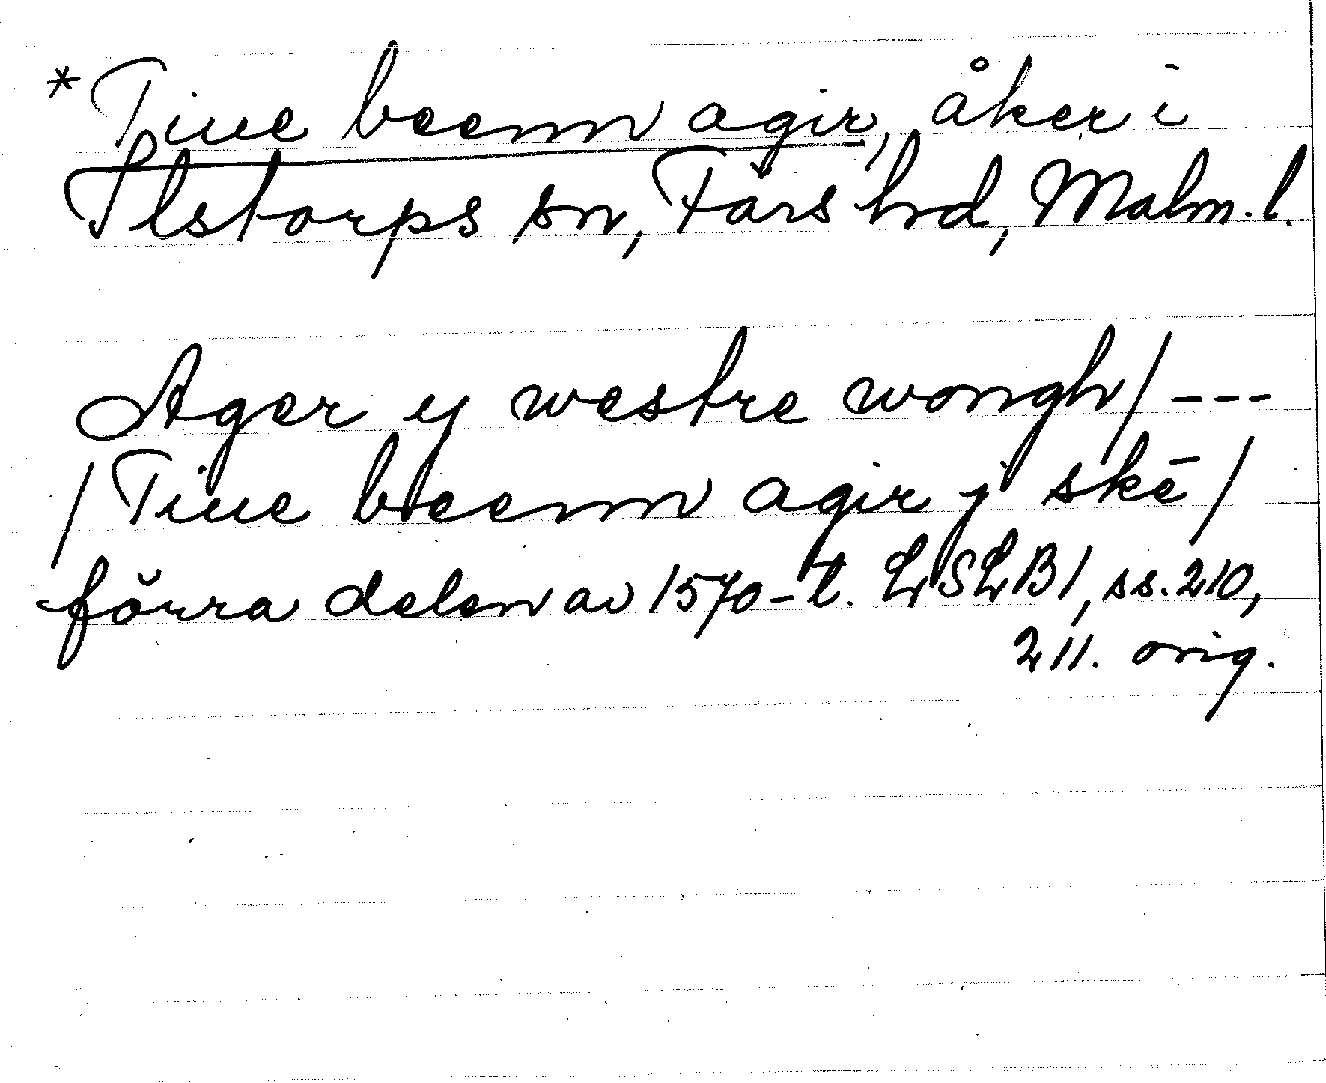 *Tiue beenn agir, åker i
Ilstorps sn, Färs hd, Malm. l.
Ager y westre wongh/ ---
/Tiue beenn agir j skē/
förra delen av 1570-t. LSLB1, ss. 210,
211. orig.